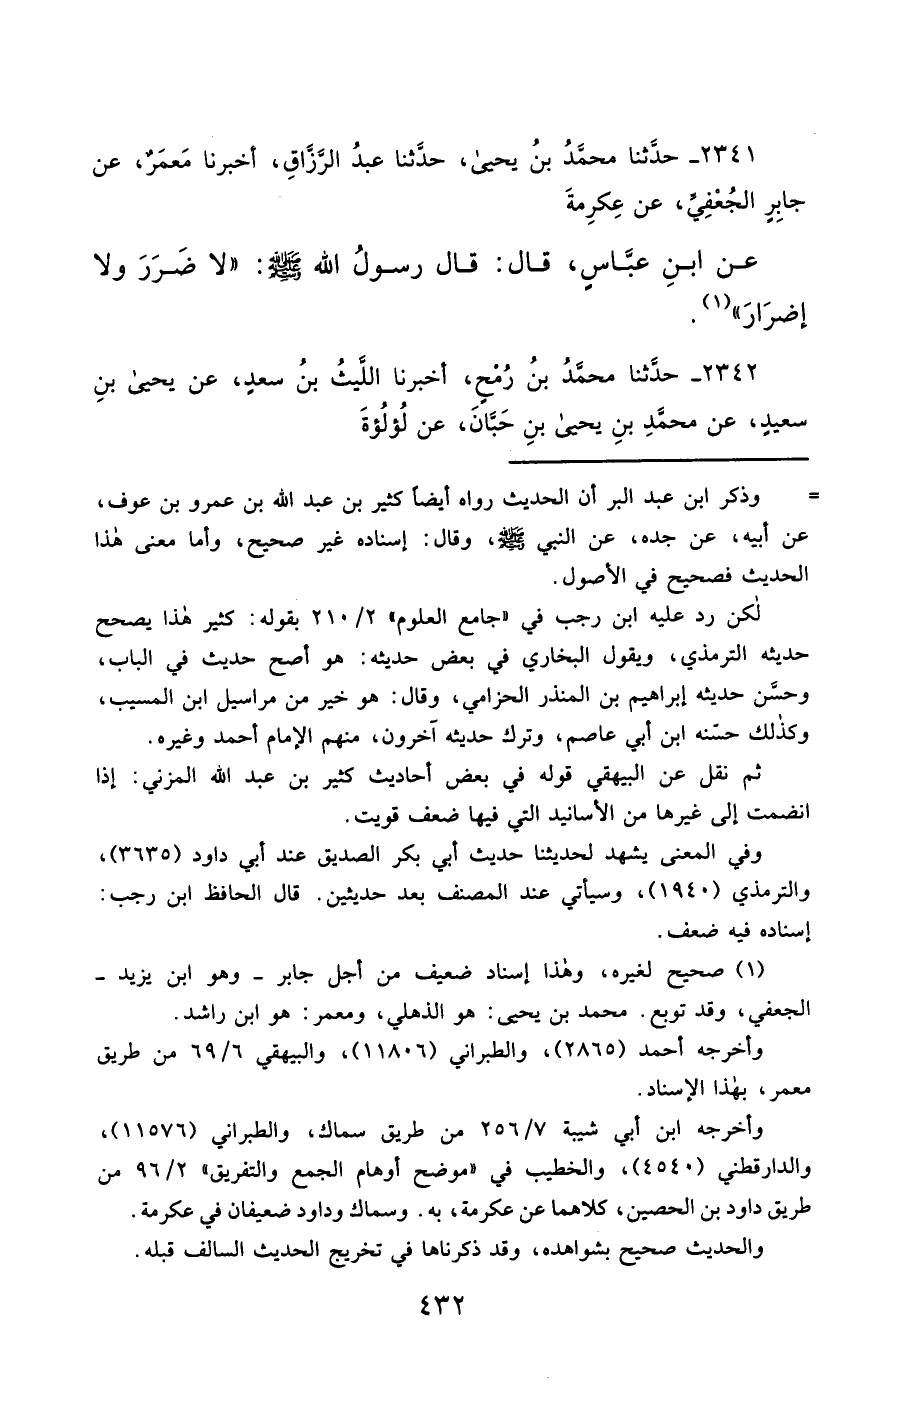 ٢٣٤١ـ حدَّثنا محمَّدُ بنُ يحيىٰ، حدَّثنا عبدُ الرَّزَّاقِ، أخبرنا مَعمَرٌ، عن
جابِرٍ الجُعْفِيِّ، عن عِكرِمةَ
عـن ابـنِ عبَّـاسٍ، قـال: قـال رسـولُ الله ﷺ: «لا ضَـرَرَ ولا
إضرَارَ»(١).
٢٣٤٢ـ حدَّثنا محمَّدُ بنُ رُمْحٍ، أخبرنا اللَّيثُ بنُ سعدٍ، عن يحيىٰ بنِ
سعيدٍ، عن محمَّدِ بنِ يحيىٰ بنِ حَبَّانَ، عن لُؤلُؤةَ
= وذكر ابن عبد البر أن الحديث رواه أيضاً كثير بن عبد الله بن عمرو بن عوف،
عن أبيه، عن جده، عن النبي ﷺ، وقال: إسناده غير صحيح، وأما معنى هٰذا
الحديث فصحيح في الأصول.
لٰكن رد عليه ابن رجب في «جامع العلوم» ٢١٠/٢ بقوله: كثير هٰذا يصحح
حديثه الترمذي، ويقول البخاري في بعض حديثه: هو أصح حديث في الباب،
وحسَّن حديثه إبراهيم بن المنذر الحزامي، وقال: هو خير من مراسيل ابن المسيب،
وكذٰلك حسّنه ابن أبي عاصم، وترك حديثه آخرون، منهم الإمام أحمد وغيره.
ثم نقل عن البيهقي قوله في بعض أحاديث كثير بن عبد الله المزني: إذا
انضمت إلى غيرها من الأسانيد التي فيها ضعف قويت.
وفي المعنى يشهد لحديثنا حديث أبي بكر الصديق عند أبي داود (٣٦٣٥)،
والترمذي (١٩٤٠)، وسيأتي عند المصنف بعد حديثين. قال الحافظ ابن رجب:
إسناده فيه ضعف.
(١) صحيح لغيره، وهٰذا إسناد ضعيف من أجل جابر ـ وهو ابن يزيد ـ
الجعفي، وقد توبع. محمد بن يحيى: هو الذهلي، ومعمر: هو ابن راشد.
وأخرجه أحمد (٢٨٦٥)، والطبراني (١١٨٠٦)، والبيهقي ٦٩/٦ من طريق
معمر، بهٰذا الإسناد.
وأخرجه ابن أبي شيبة ٢٥٦/٧ من طريق سماك، والطبراني (١١٥٧٦)،
والدارقطني (٤٥٤٠)، والخطيب في «موضح أوهام الجمع والتفريق» ٩٦/٢ من
طريق داود بن الحصين، كلاهما عن عكرمة، به. وسماك وداود ضعيفان في عكرمة.
والحديث صحيح بشواهده، وقد ذكرناها في تخريج الحديث السالف قبله.
٤٣٢